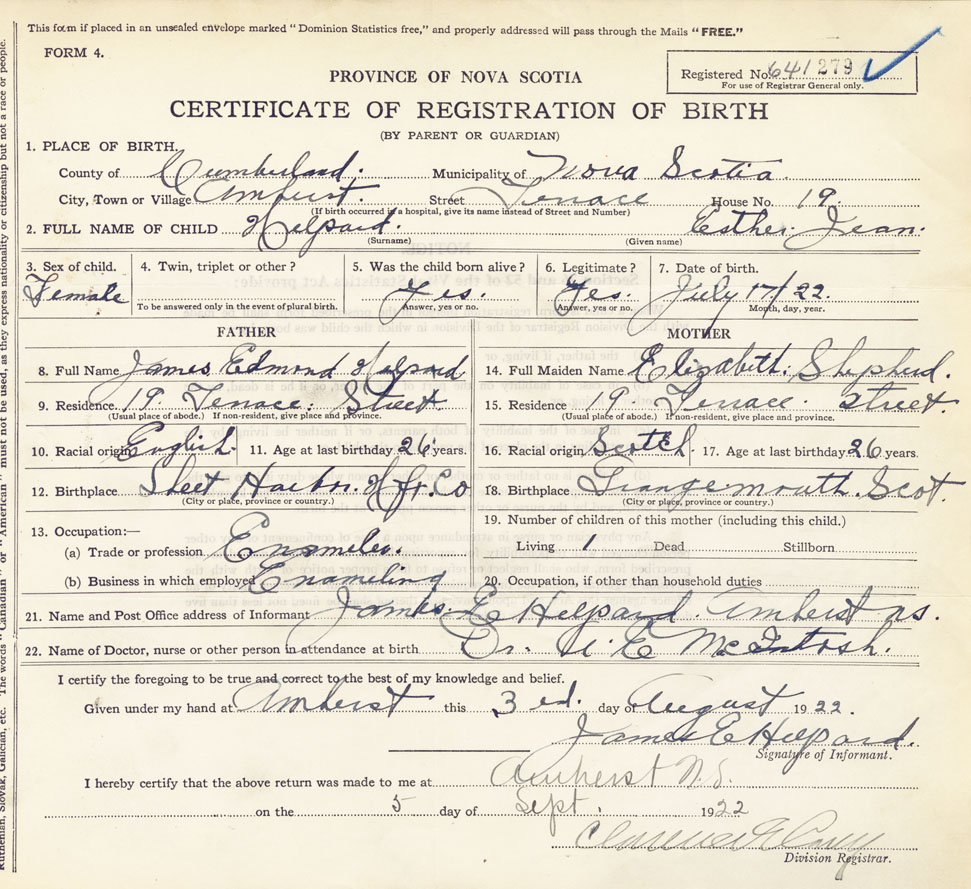 This form if placed in an unsealed envelope marked "Dominion Statistics free," and properly addressed will pass through the Mails "FREE."
FORM 4.
PROVINCE OF NOVA SCOTIA
Registered No. 641279
For use of Registrar General only.
CERTIFICATE OF REGISTRATION OF BIRTH
(BY PARENT OR GUARDIAN)
1. PLACE OF BIRTH.
County of Cumberland. Municipality of Nova Scotia
City, Town or Village Amherst. Street Terrace House No. 19.
(If birth occurred in a hospital, give its name instead of Street and Number)
2. FULL NAME OF CHILD Helpard. Esther Jean.
(Surname) (Given name)
3. Sex of child. 4. Twin, triplet or other? 5. Was the child born alive? 6. Legitimate? 7. Date of birth.
Female Yes. Yes. July 17/22.
To be answered only in the event of plural birth. Answer, yes or no. Answer, yes or no. Month, day, year.
FATHER MOTHER
8. Full Name James Edmond Helpard 14. Full Maiden Name Elizabeth Shepherd.
9. Residence 19. Terrace Street 15. Residence 19. Terrace Street.
(Usual place of abode.) If non-resident, give place and province. (Usual place of abode.) If non-resident, give place and province.
10. Racial origin English. 11. Age at last birthday 26 years. 16. Racial origin Scotch. 17. Age at last birthday 26 years.
12. Birthplace Sheet Harbor. Hfx. Co 18. Birthplace Grangemouth. Scot.
(City or place, province or country.) (City or place, province or country.)
13. Occupation:— 19. Number of children of this mother (including this child.)
(a) Trade or profession Enameler. Living 1 Dead Stillborn
(b) Business in which employed Enameling 20. Occupation, if other than household duties
21. Name and Post Office address of Informant James. E. Helpard. Amherst
22. Name of Doctor, nurse or other person in attendance at birth Dr. McIntosh.
I certify the foregoing to be true and correct to the best of my knowledge and belief.
Given under my hand at Amherst this 3 ed. day of August 1922.
James E Helpard.
Signature of Informant.
I hereby certify that the above return was made to me at Amherst N.S.
on the 5 day of Sept. 1922
Clarence
Division Registrar.
Ruthenian, Slovak, Galician, etc. The words "Canadian" or "American" must not be used, as they express nationality or citizenship but not a race or people.